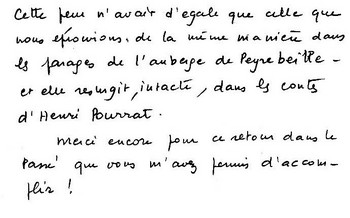 Cette peur n'avait d'égale que celle que
nous éprouvions, de la même manière dans
les parages de l'auberge de Peyrebeille -
et elle resurgit, intacte, dans les contes
d'Henri Pourrat.
Merci encore pour ce retour dans le
Passé que vous m'avez permis d'accom-
plir !